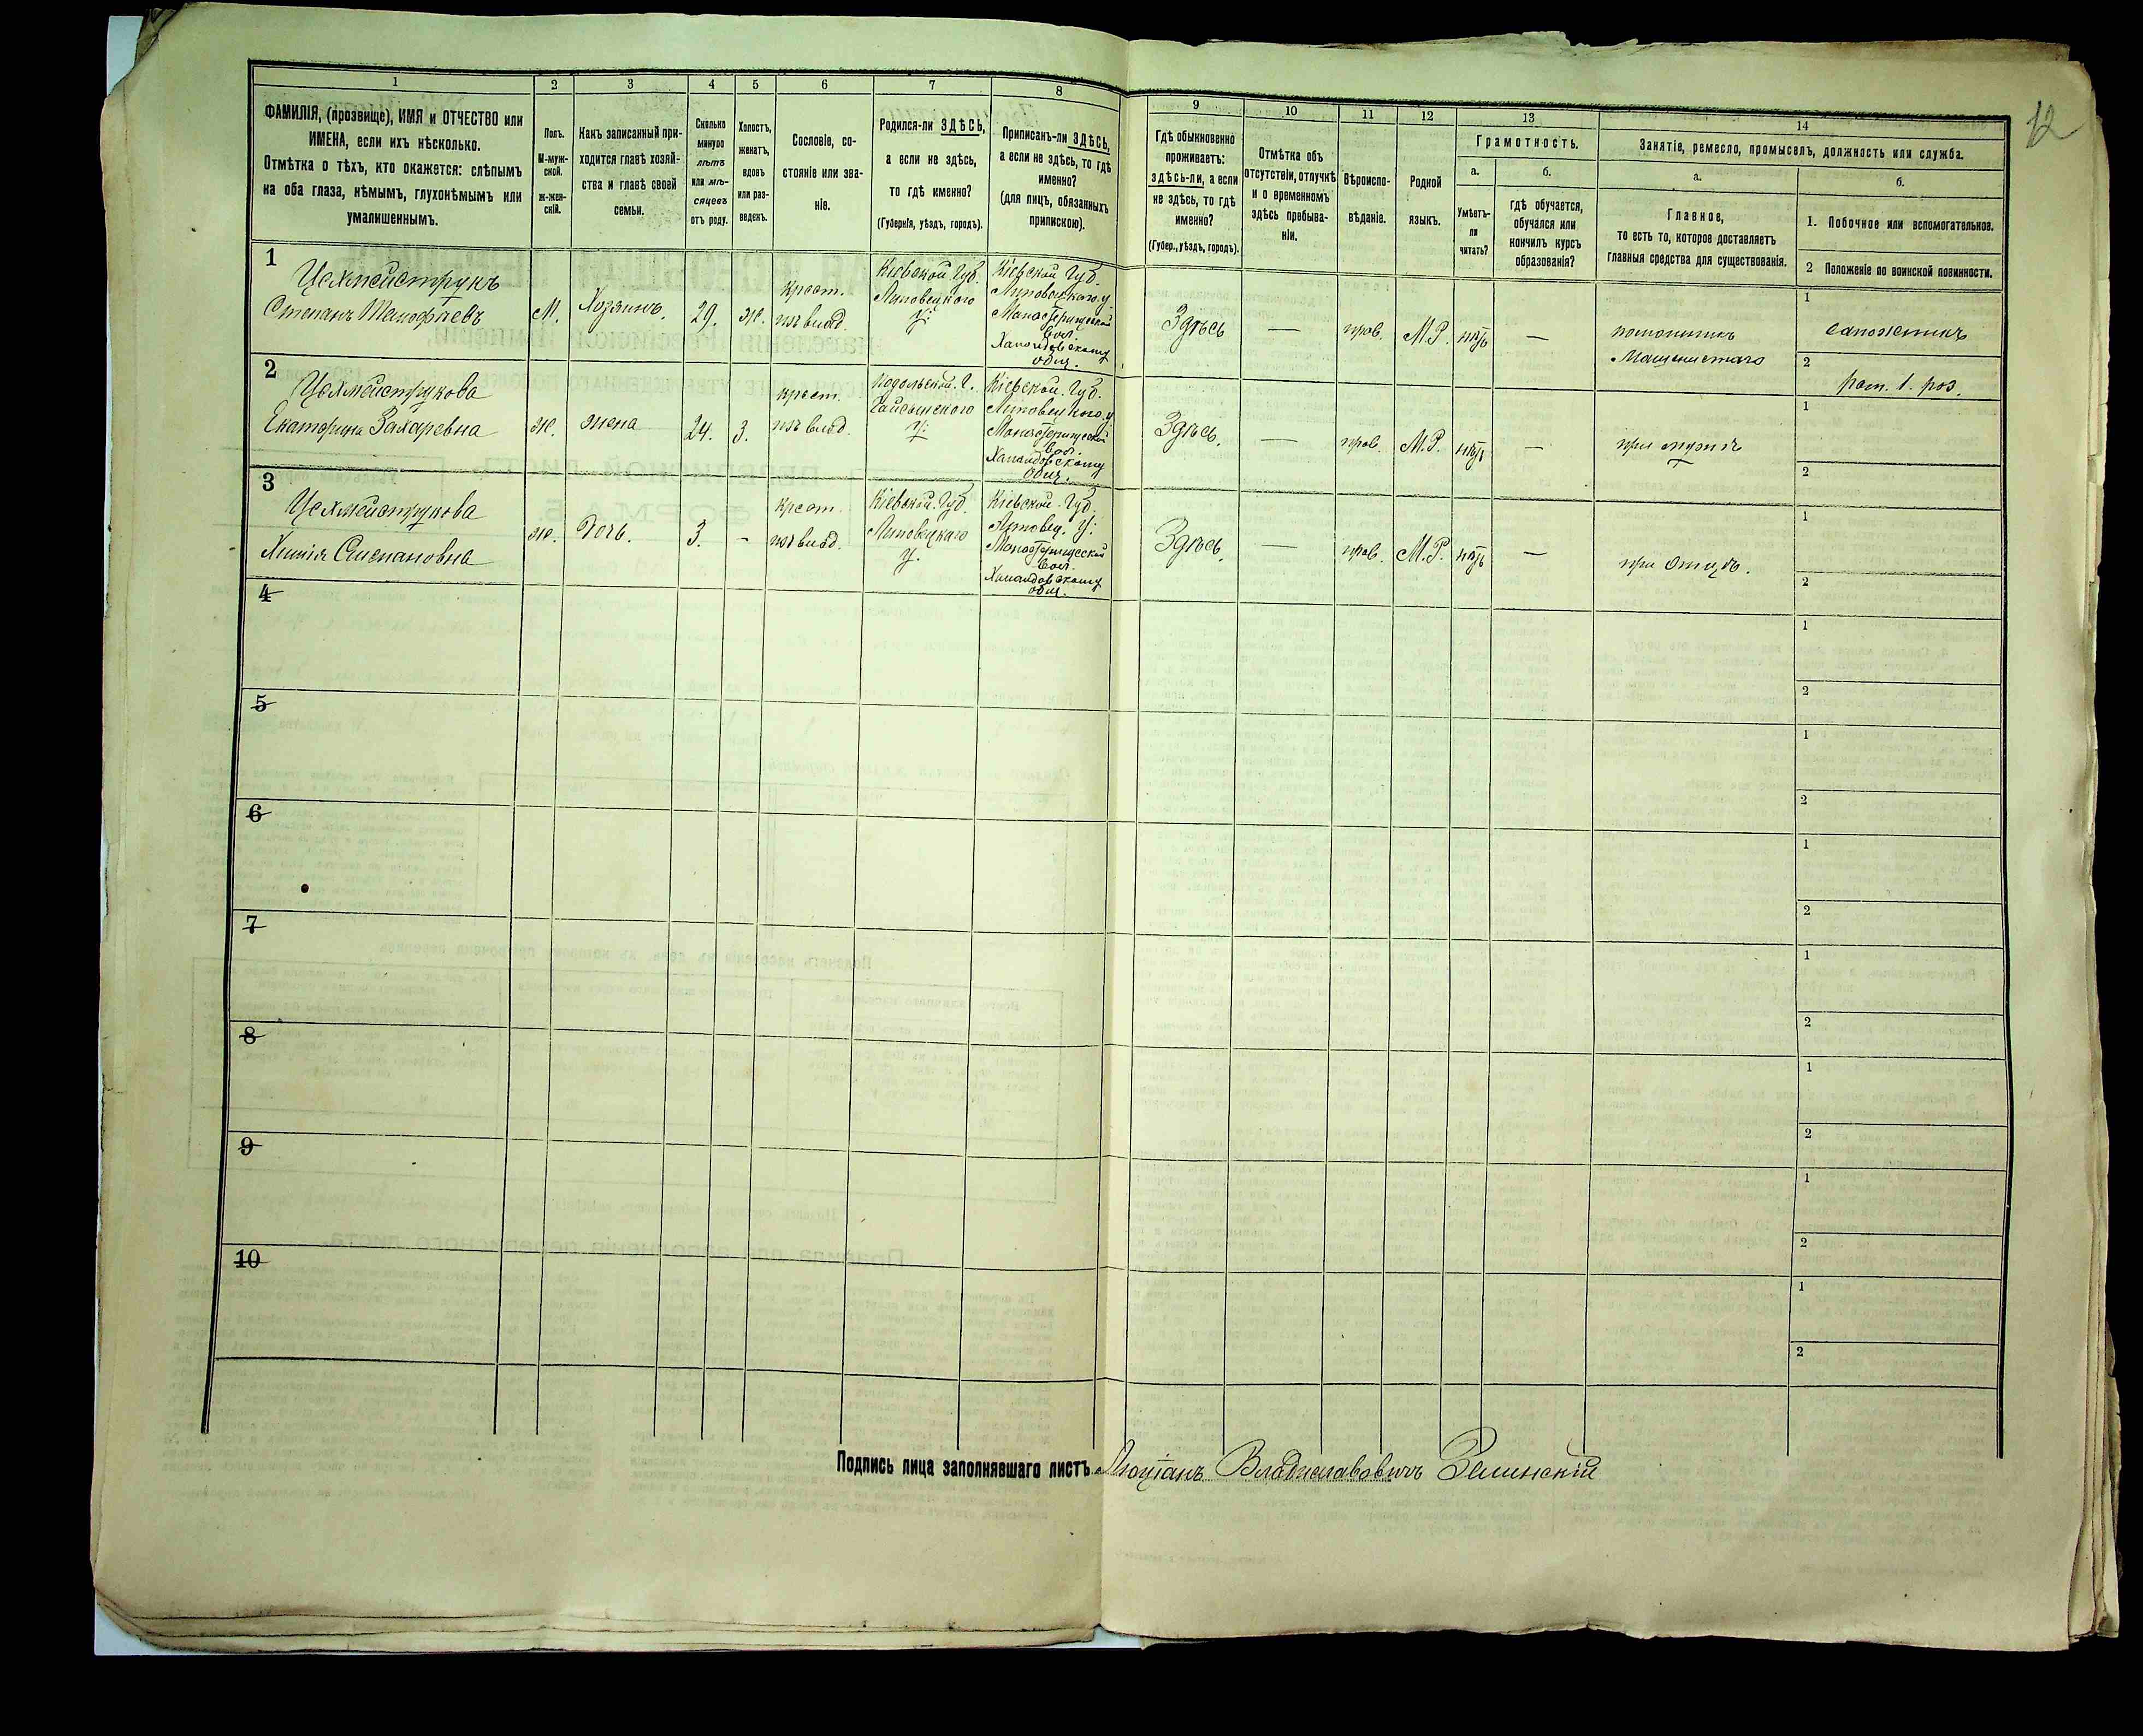 12
1 2 3 4 5 6 7 8 9 10 11 12 13 14
ФАМИЛІЯ, (прозвище), ИМЯ и ОТЧЕСТВО или
ИМЕНА, если ихъ нѣсколько.
Отмѣтка о тѣхъ, кто окажется: слѣпымъ
на оба глаза, нѣмымъ, глухонѣмымъ или
умалишеннымъ.
Полъ.
М-муж-
ской.
ж-жен-
скій.
Какъ записанный при-
ходится главѣ хозяй-
ства и главѣ своей
семьи.
Сколько
минуло
лѣтъ
или мѣ-
сяцевъ
отъ роду.
Холостъ,
женатъ,
вдовъ
или раз-
веденъ.
Сословіе, со-
стояніе или зва-
ніе.
Родился-ли ЗДѢСЬ,
а если не здѣсь,
то гдѣ именно?
(Губернія, уѣздъ, городъ).
Приписанъ-ли ЗДѢСЬ,
а если не здѣсь, то гдѣ
именно?
(для лицъ, обязанныхъ
припискою).
Гдѣ обыкновенно
проживаетъ:
здѣсь-ли, а если
не здѣсь, то гдѣ
именно?
(Губер., уѣздъ, городъ).
Отмѣтка объ
отсутствіи, отлучкѣ
и о временномъ
здѣсь пребыва-
ніи.
Вѣроиспо-
вѣданіе.
Родной
языкъ.
Грамотность.
а.
Умѣетъ-
ли
читать?
б.
гдѣ обучается,
обучался или
кончилъ курсъ
образованія?
Занятіе, ремесло, промыселъ, должность или служба.
а.
Главное,
то есть то, которое доставляетъ
главныя средства для существованія.
б.
1. Побочное или вспомогательное.
2 Положеніе по воинской повинности.
1
Цехмейструкъ
Степанъ Тимофѣевъ
М.
Хозяинъ.
29.
ж.
крест.
изъ влад.
Кіевской Губ.
Липовецкого
у.
Кіевской Губ.
Липовецкого у.
Монастерищеской
Вол.
общ.
Здѣсь
—
прав.
М.Р.
нѣтъ
—
помощникъ
Машиниста
1
сапожникъ
2
рат. 1. раз.
2
Цехмейструкова
Екатерина Захаревна
ж.
жена
24.
З.
крест.
изъ влад.
Подольской. Г.
Гайсынского
у.
Кіевской. Губ.
Липовецкого. у
Монастерищеской
Вол.
общ.
Здѣсь.
—
прав.
М.Р.
нѣтъ
—
при мужѣ
1
2
3
Цехмейструкова
Степановна
ж.
Дочь.
3.
-
крест.
изъ влад.
Кіевской. Губ.
Липовецкаго
у.
Кіевской. Губ.
Липовец. у.
Монастерищеской
Вол.
общ.
Здѣсь.
—
прав.
М.Р.
нѣтъ
—
при Отцѣ.
1
2
4
1
2
5
1
2
6
1
2
7
1
2
8
1
2
9
1
2
10
1
2
Подпись лица заполнявшаго листъ Люціанъ Владиславовичъ Зелинскій